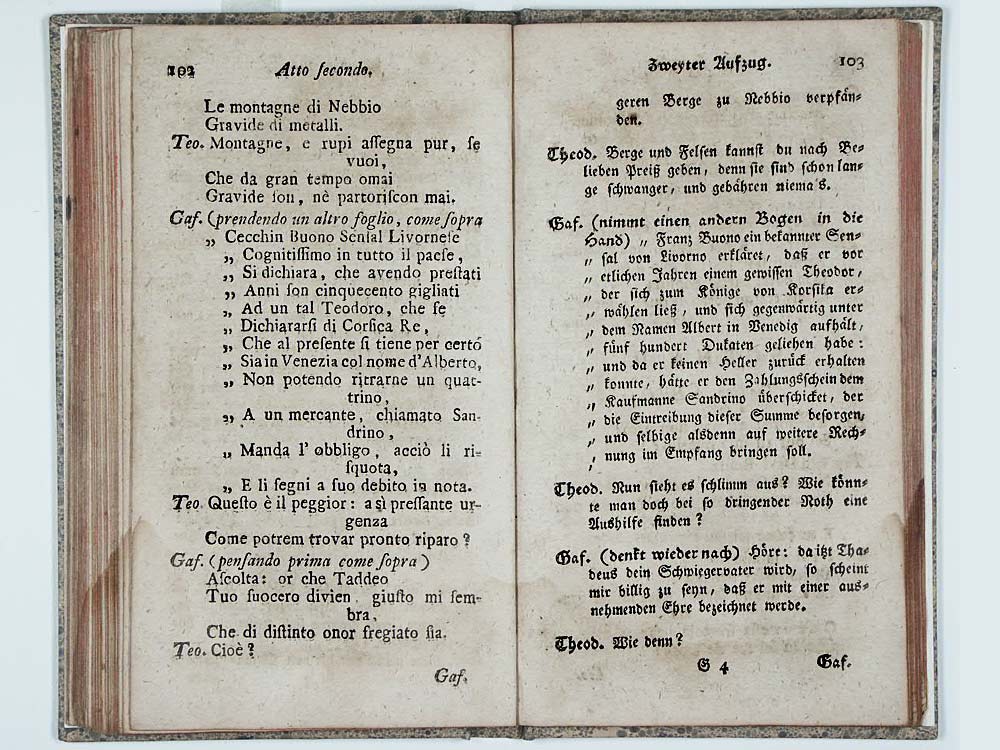 102 Atto ſecondo.
Le montagne di Nebbio
Gravide di metalli.
Teo. Montagne, e rupi aſſegna pur, ſe
vuoi,
Che da gran tempo omai
Gravide ſon, nè partoriſcon mai.
Gaf. (prendendo un altro foglio, come ſopra
„ Cecchin Buono Senſal Livorneſe
„ Cognitiſſimo in tutto il paeſe,
„ Si dichiara, che avendo preſtati
„ Anni ſon cinquecento gigliati
„ Ad un tal Teodoro, che fe
„ Dichiararſi di Corſica Re,
„ Che al preſente ſi tiene per certo
„ Sia in Venezia col nome d'Alberto,
„ Non potendo ritrarne un quat-
trino,
„ A un mercante, chiamato San-
drino,
„ Manda l'obbligo, acciò li ri-
ſquota,
„ E li ſegni a ſuo debito in nota.
Teo. Queſto è il peggior: a sì preſſante ur-
genza
Come potrem trovar pronto riparo?
Gaf. (penſando prima come ſopra)
Aſcolta: or che Taddeo
Tuo ſuocero divien, giuſto mi ſem-
bra,
Che di diſtinto onor fregiato ſia.
Teo. Cioè?
Gaf.
Zweyter Aufzug. 103
geren Berge zu Nebbio verpfän-
den.
Theod. Berge und Felſen kannſt du nach Be-
lieben Preiß geben, denn ſie ſind ſchon lan-
ge ſchwanger, und gebähren niemals.
Gaf. (nimmt einen andern Bogen in die
Hand) „ Franz Buono ein bekannter Sen-
„ ſal von Livorno erkläret, daß er vor
„ etlichen Jahren einem gewiſſen Theodor,
„ der ſich zum Könige von Korſika er-
„ wählen ließ, und ſich gegenwärtig unter
„ dem Namen Albert in Venedig aufhält,
„ fünf hundert Dukaten geliehen habe:
„ und da er keinen Heller zurück erhalten
„ konnte, hätte er den Zahlungsſchein dem
„ Kaufmanne Sandrino überſchicket, der
„ die Eintreibung dieſer Summe beſorgen,
„ und ſelbige alsdenn auf weitere Rech-
„ nung im Empfang bringen ſoll.
Theod. Nun ſieht es ſchlimm aus? Wie könn-
te man doch bei ſo dringender Noth eine
Aushilfe finden?
Gaf. (denkt wieder nach) Höre: da itzt Tha-
deus dein Schwiegervater wird, ſo ſcheint
mir billig zu ſeyn, daß er mit einer aus-
nehmenden Ehre bezeichnet werde.
Theod. Wie denn?
G 4 Gaf.